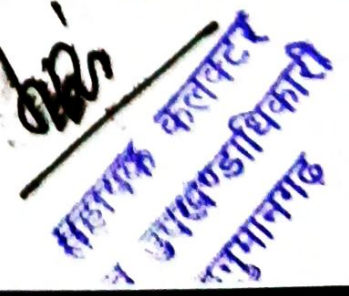 सहायक कलक्टर
उपखण्डाधिकारी
हनुमानगढ